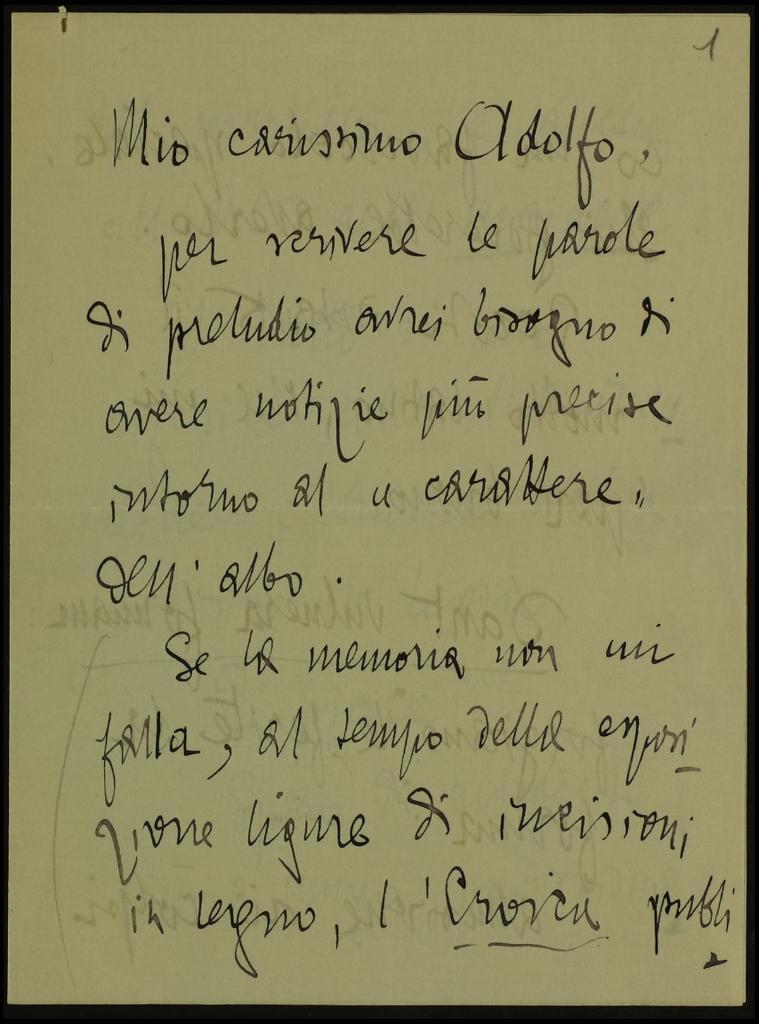 1
Mio carissimo Adolfo,
per scrivere le parole
di preludio avrei bisogno di
avere notizie più precise
intorno al " carattere "
dell' albo.
Se la memoria non mi
falla, al tempo della esposi
zione ligure di incisioni
in legno, l'Eroica publi